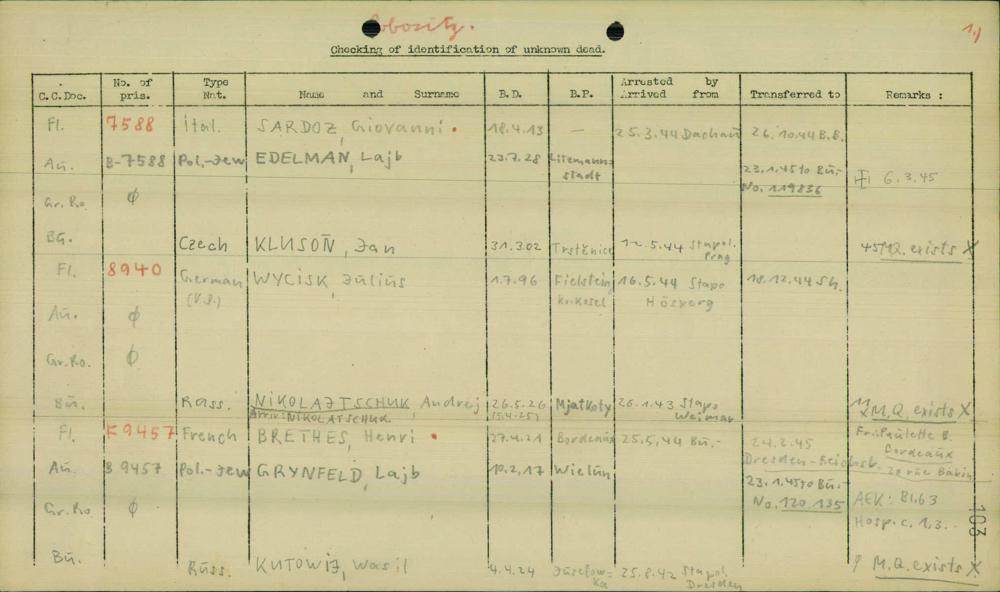 Obositz.
1.)
Checking of identification of unknown dead.
C.C.Doc. No. of pris. Type Nat. Name and Surname B.D. B.P. Arrested by Arrived from Transferred to Remarks :
Fl. 7588 Ital. SARDOZ, Giovanni 18.4.13 — 25.3.44 Dachau 26.10.44 B.B.
Au. B-7588 Pol.-Jew EDELMAN, Lajb 23.7.28 Litzmannstadt 23.1.45 to Bu.- No. 119836 6.3.45
Gr.Ro. ϕ
Bu. Czech KLUSOŇ, Jan 31.3.02 Trstěnice 12.5.44 Stapol. Prag exists X
Fl. 8940 German (V.B.) WYCISK, Julius 1.7.96 Fielstein Kr. Kosel 16.5.44 Stapo 18.12.44 Sh.
Au. ϕ
Gr.Ro. ϕ
Bu. Russ. NIKOLAJTSCHUK, Andrej 26.5.26 Mjatkoty 26.1.43 Stapo Weimar M.Q. exists X
NIKOLATSCHUK (5.4.25)
Fl. K9457 French BRETHES, Henri 27.4.21 Bordeaux 25.5.44 Bu.- 24.2.45 Dresden-Reichsb. Fr. Paulette B. Bordeaux
Au. B 9457 Pol.-Jew GRYNFELD, Lajb 10.2.17 Wielun 23.1.45 to Bu.- No. 120.135
Gr.Ro. ϕ AEK: 8163 Hosp. c. 1,3.
103
Bu. Russ. KUTOWIJ, Wasil 4.4.24 Juselowka 25.8.42 Stapol. Dresden M.Q. exists X